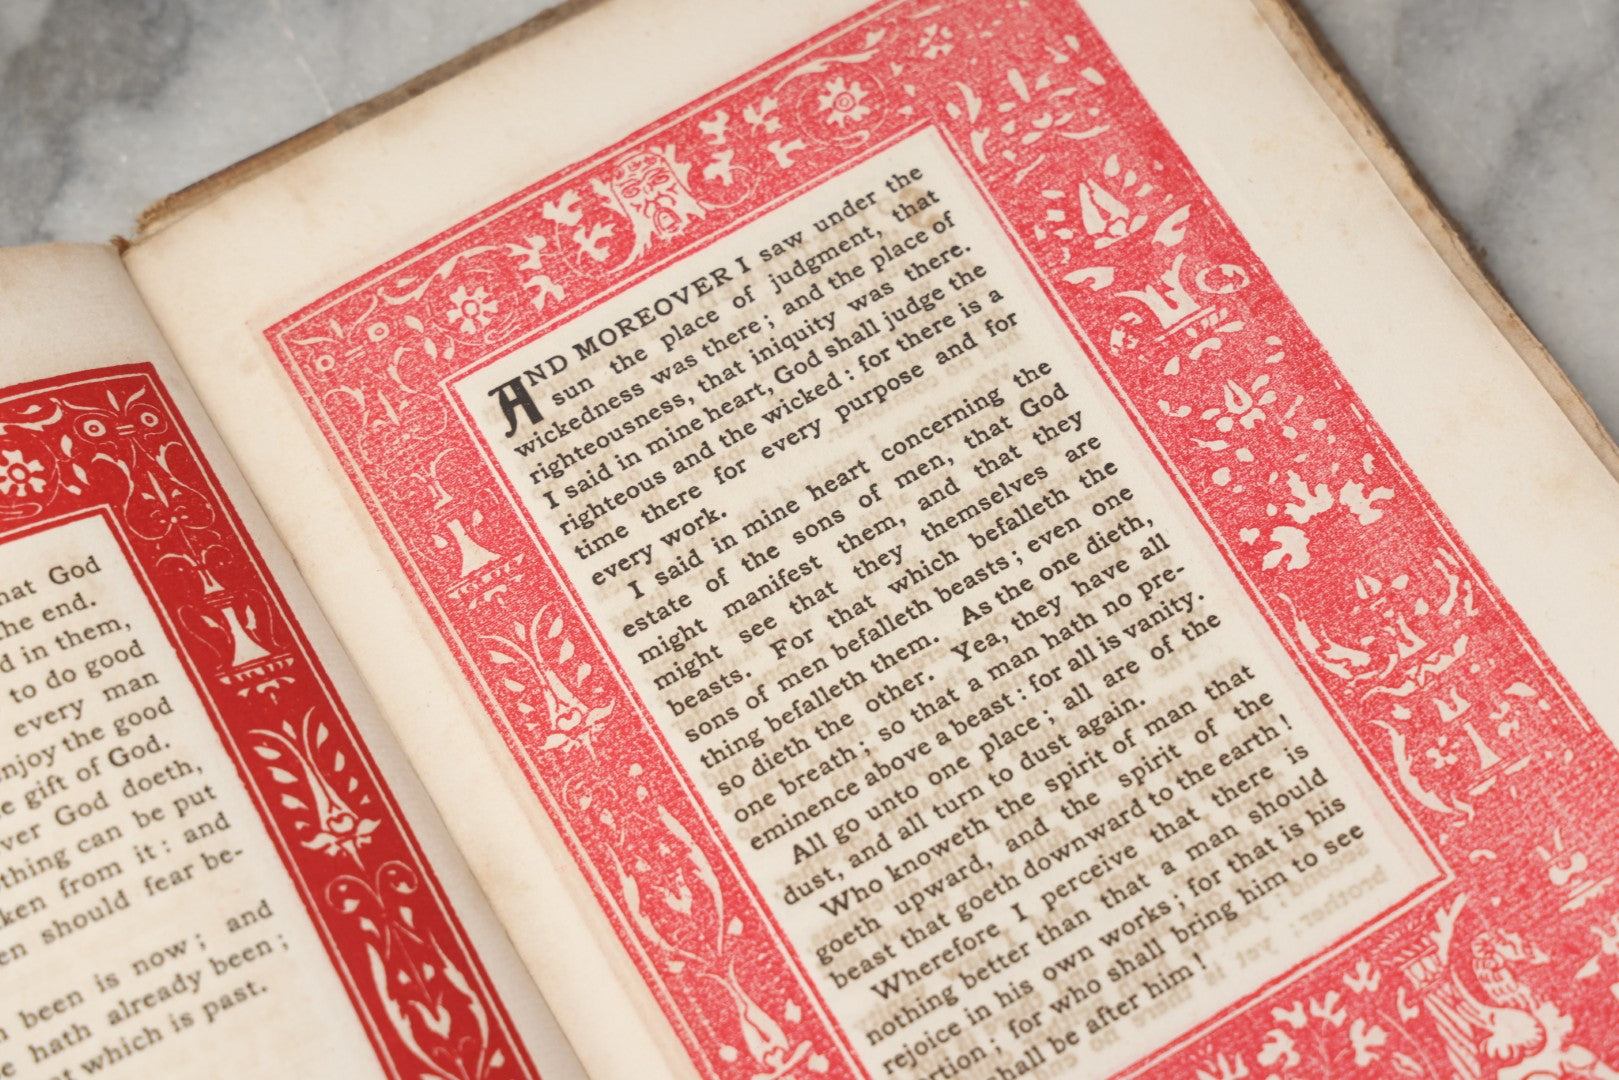 hat God
he end.
d in them,
to do good
every man
njoy the good
e gift of God.
ver God doeth,
thing can be put
ken from it: and
en should fear be-
been is now; and
e hath already been;
t which is past.
AND MOREOVER I saw under the
sun the place of judgment, that
wickedness was there; and the place of
righteousness, that iniquity was there.
I said in mine heart, God shall judge the
righteous and the wicked: for there is a
time there for every purpose and for
every work.
I said in mine heart concerning the
estate of the sons of men, that God
might manifest them, and that they
might see that they themselves are
beasts. For that which befalleth the
sons of men befalleth beasts; even one
thing befalleth them. As the one dieth,
so dieth the other. Yea, they have all
one breath; so that a man hath no pre-
eminence above a beast: for all is vanity.
All go unto one place; all are of the
dust, and all turn to dust again.
Who knoweth the spirit of man that
goeth upward, and the spirit of the
beast that goeth downward to the earth!
Wherefore I perceive that there is
nothing better than that a man should
rejoice in his own works; for that is his
ortion; for who shall bring him to see
hall be after him!